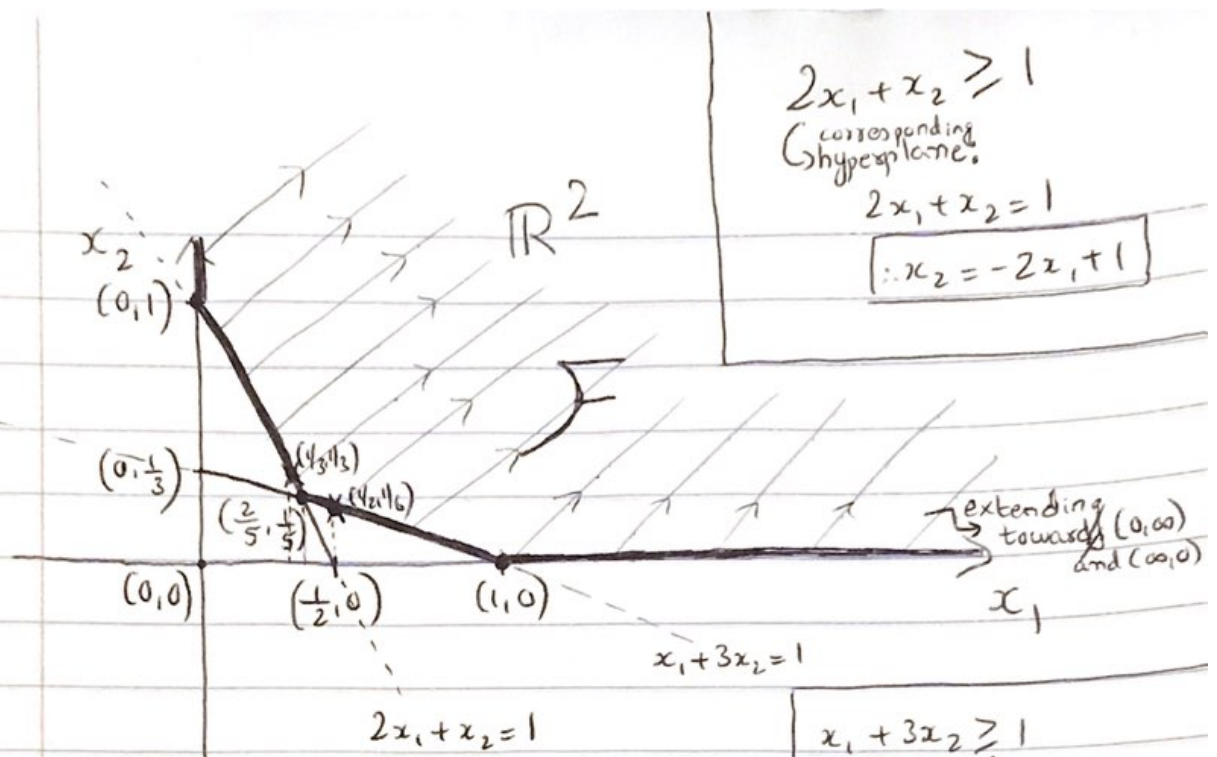 2x₁ + x₂ ≥ 1
corresponding
hyperplane:
2x₁ + x₂ = 1
∴ x₂ = -2x₁ + 1
ℝ²
x₂
(0,1)
(0,1/3)
(1/3,1/3)
(2/5,1/5)
(1/2,1/6)
extending
towards (0,∞)
and (∞,0)
(0,0)
(1/2,0)
(1,0)
x₁
x₁ + 3x₂ = 1
2x₁ + x₂ = 1
x₁ + 3x₂ ≥ 1